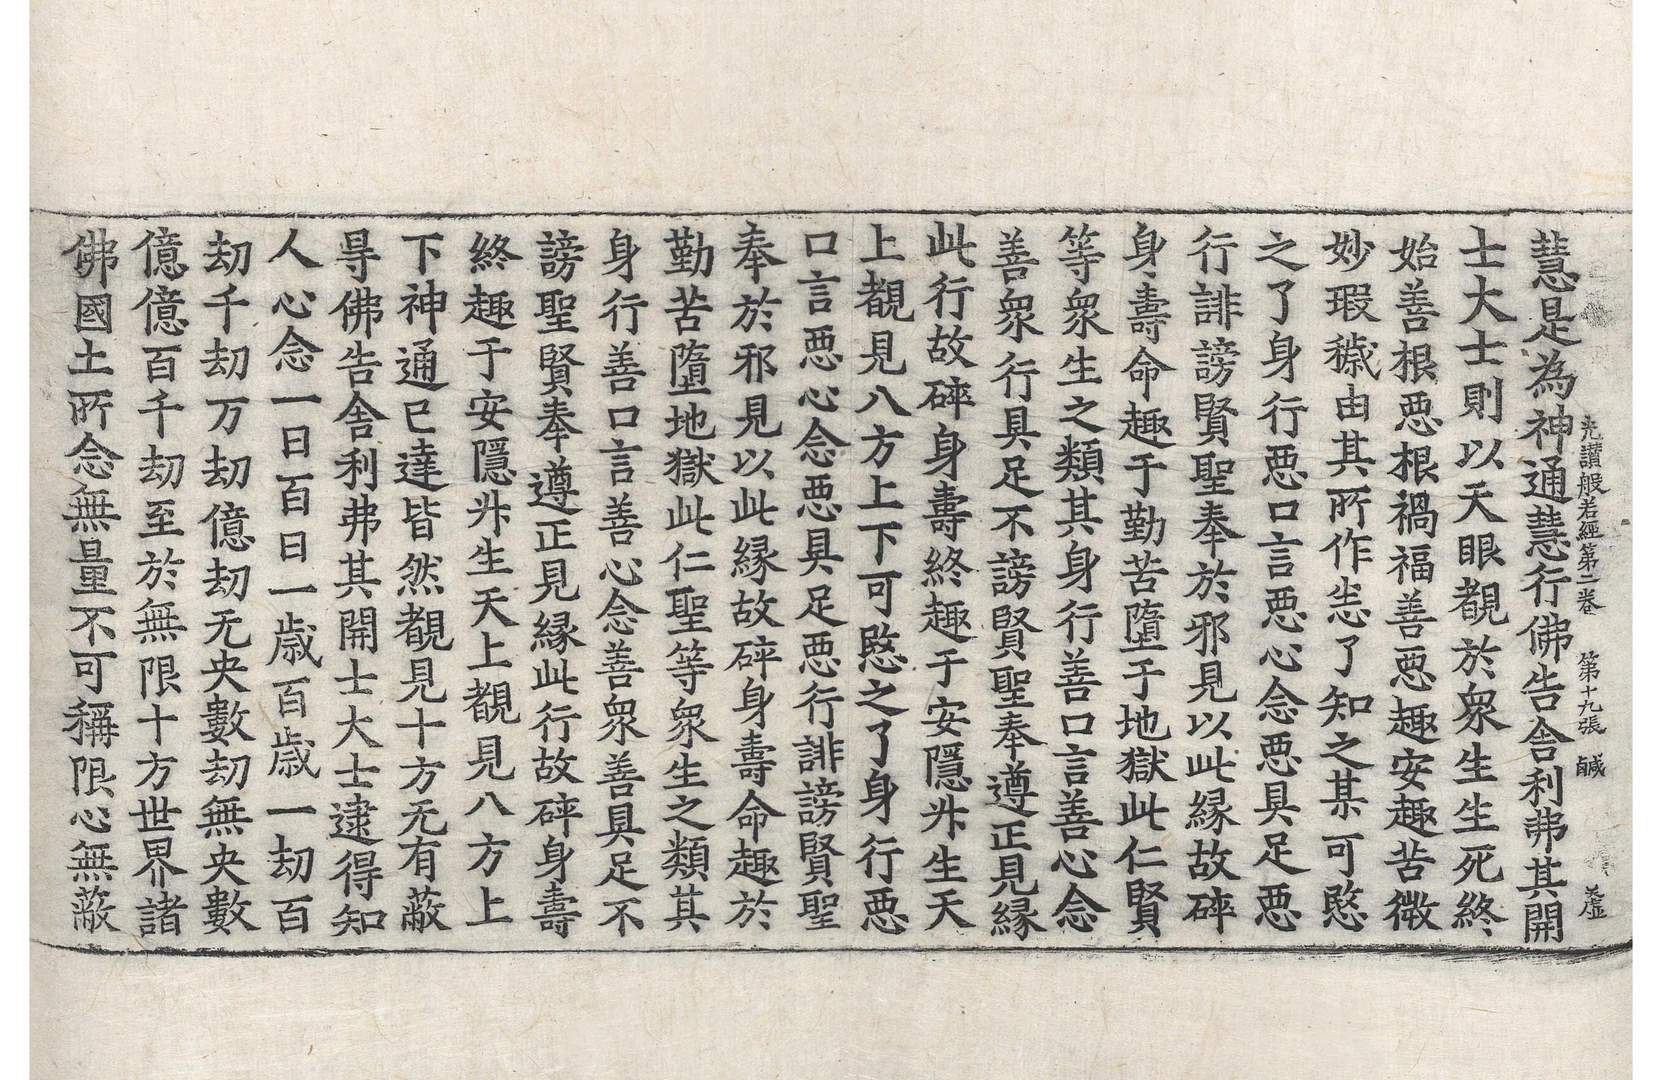 光讃般若經第二卷 第十九張 鹹
慧是為神通慧行佛告舍利弗其開
士大士則以天眼覩於衆生生死終
始善根惡根禍福善惡趣安趣苦微
妙瑕穢由其所作恙了知之某可愍
之了身行惡口言惡心念惡具足惡
行誹謗賢聖奉於邪見以此縁故碎
身壽命趣于勤苦墮于地獄此仁賢
等衆生之類其身行善口言善心念
善衆行具足不謗賢聖奉遵正見縁
此行故碎身壽終趣于安隱昇生天
上覩見八方上下可愍之了身行惡
口言惡心念惡具足惡行誹謗賢聖
奉於邪見以此縁故碎身壽命趣於
勤苦墮地獄此仁聖等衆生之類其
身行善口言善心念善衆善具足不
謗聖賢奉遵正見縁此行故碎身壽
終趣于安隱昇生天上覩見八方上
下神通已達皆然覩見十方无有蔽
㝵佛告舍利弗其開士大士逮得知
人心念一日百日一歲百歲一劫百
劫千劫万劫億劫无央數劫無央數
億億百千劫至於無限十方世界諸
佛國土所念無量不可稱限心無蔽